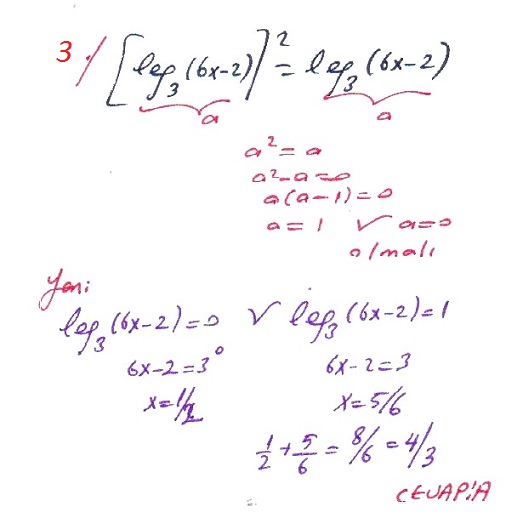 3 / [log₃(6x-2)]² = log₃(6x-2)
a a
a² = a
a²-a=0
a(a-1)=0
a = 1 ∨ a=0
olmalı
Yani
log₃(6x-2)=0 ∨ log₃(6x-2)=1
6x-2=3⁰ 6x-2=3
x=1/2 x=5/6
1/2 + 5/6 = 8/6 = 4/3
CEVAP:A